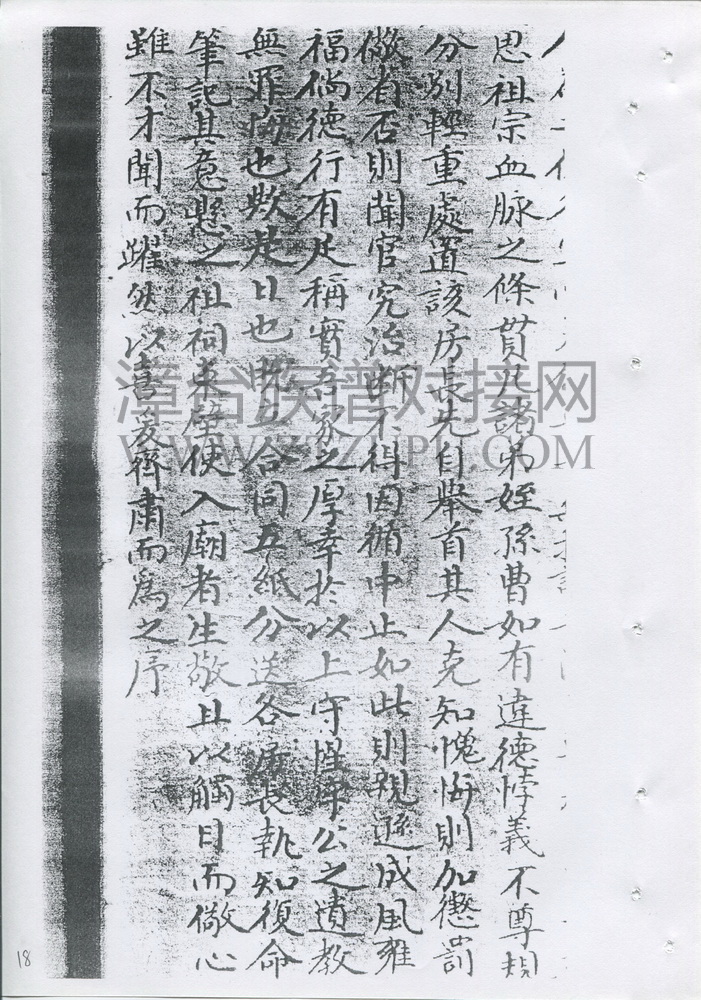 思祖宗血脉之條貫凡諸弟姪孫曹如有違德悖義不尊規
分別輕重處置該房長先自舉首其人克知愧悔則加懲罰
儆者否則聞官究治斷不得因循中止如此則親遜成風雍
福倘德行有足稱實吾家之厚幸於以上守惺菴公之遺教
無罪悔也歟是日也既立合同五紙分送各房長執知復命
筆記其意懸之祖祠東壁使入廟者生敬且以觸目而儆心
雖不才聞而躍然以喜爰齊肅而為之序
漳台族谱对接网
18